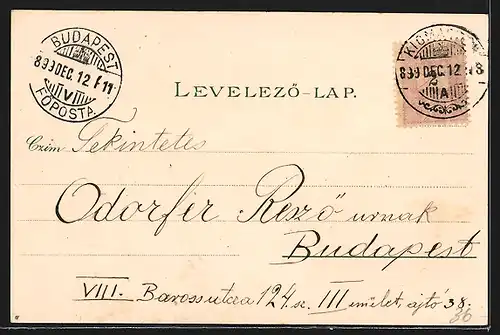 BUDAPEST
899 DEC. 12 F 11
V
FŐPOSTA
899 DEC. 12
A
LEVELEZŐ-LAP.
Czim Tekintetes
Odorfer Rezső urnak
Budapest
VIII. Baross utcza 124. sz. III emelet, ajtó 38.
36